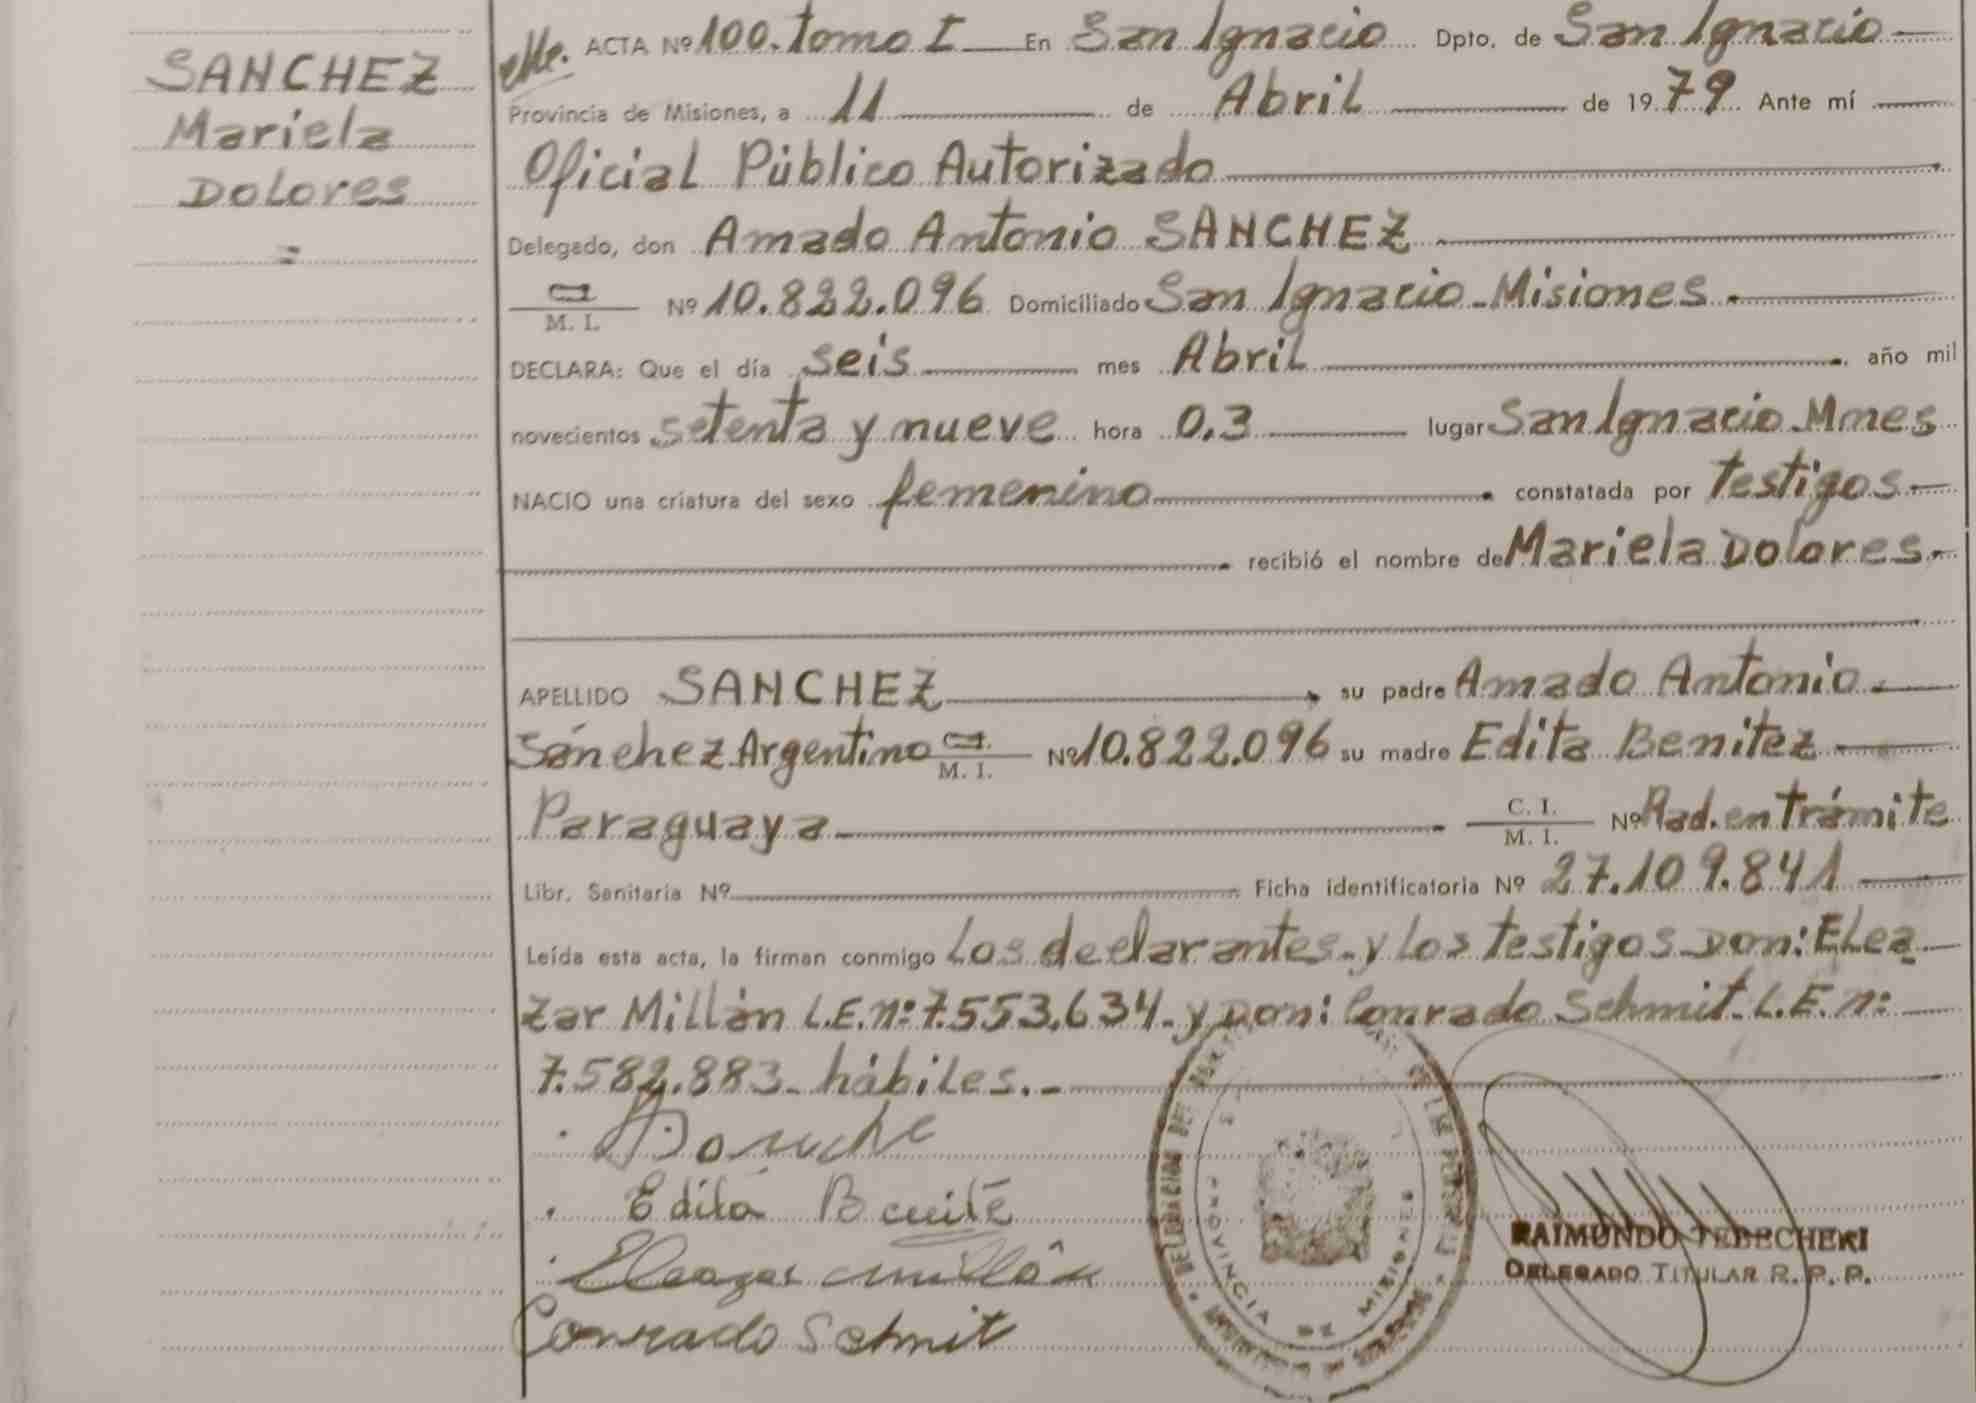 SANCHEZ
Mariela
Dolores
=
ACTA Nº 100. Tomo I En San Ignacio Dpto. de San Ignacio
Provincia de Misiones, a 11 de Abril de 1979 Ante mí
Oficial Público Autorizado
Delegado, don Amado Antonio SANCHEZ
M. I. Nº 10.822.096 Domiciliado San Ignacio - Misiones
DECLARA: Que el día seis mes Abril año mil
novecientos setenta y nueve hora 0.3 lugar San Ignacio - Mnes
NACIO una criatura del sexo femenino constatada por testigos
recibió el nombre de Mariela Dolores
APELLIDO SANCHEZ su padre Amado Antonio
Sánchez Argentino M. I. Nº 10.822.096 su madre Edita Benitez
Paraguaya C. I. M. I. Nº Rad. en Trámite
Libr. Sanitaria Nº Ficha identificatoria Nº 27.109.841
Leída esta acta, la firman conmigo Los declarantes - y Los testigos Don: Elea
zar Millán L.E. n: 7.553.634 - y Don: Conrado Schmit - L.E. n:
7.582.883 - hábiles.-
Edita Benite
Eleazar Millán
Conrado Schmit
PROVINCIA DE MISIONES
RAIMUNDO TEBECHERI
DELEGADO TITULAR R. P. P.